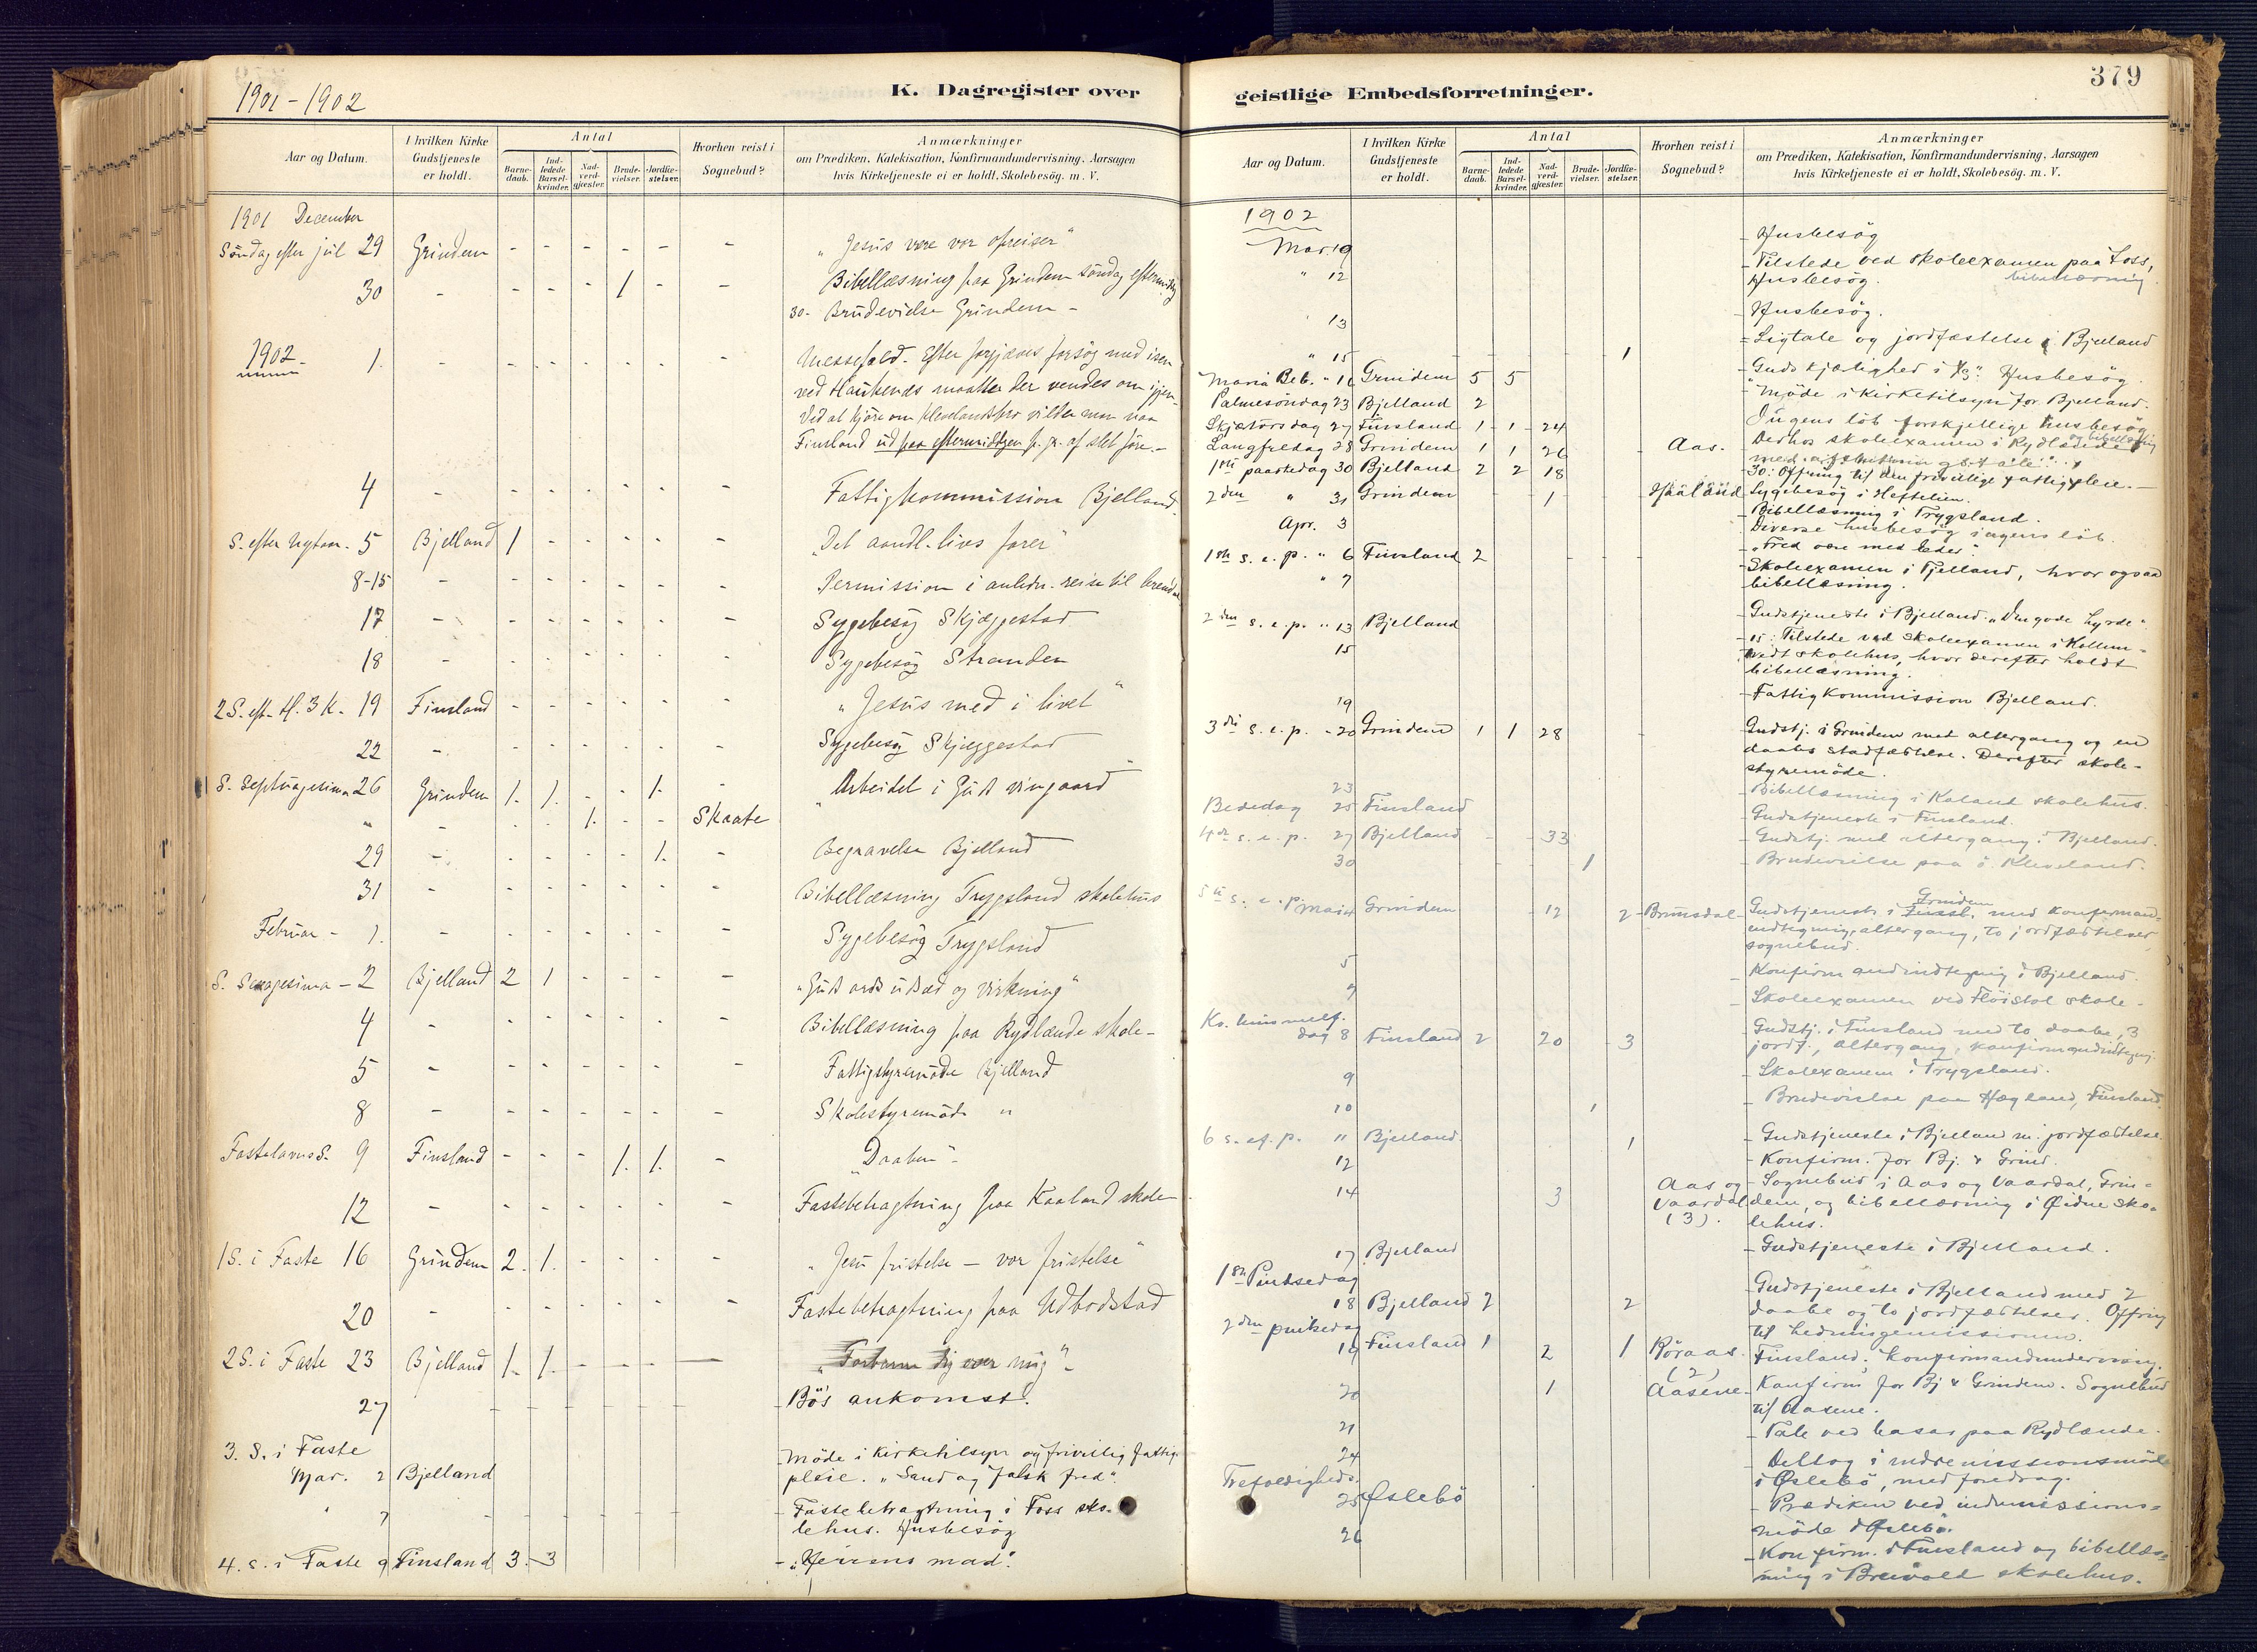 1901-1902
K. Dagregister over
Aar og Datum.
I hvilken Kirke Gudstjeneste er holdt.
Antal
Barnedaab.
Indledede Barselkvinder.
Nadverdgjæster.
Brudevielser.
Jordfæstelser.
Hvorhen reist i Sognebud?
Anmærkninger
om Prædiken, Katekisation, Konfirmandundervisning, Aarsagen
hvis Kirketjeneste ei er holdt, Skolebesög. m. V.
1901 December
Söndag efter jul 29 Grindem - - - - - - "Jesus vore vor
Bibellæsning paa Grindem söndag eftermidag
30 - - - - 1 - - 30- Brudevielse Grindem -
1902 1. - - - - - - Messefald. Efter forgjæves forsög med isen
ved Haukenæs maatte der vendes om igjen.
Ved at kjöre om Klevelandsbro vilde man naa
Finsland ud paa eftermiddagen p. gr. af slet före.-
4 - - - - - - - Fattigkommission Bjelland.
S. efter Nytaar. 5 Bjelland 1 - - - - - "Det aandl. livs
8-15 - - - - - - - Permission i anledn. reise til
17 - - - - - - - Sygebesög Skjæggestad
18 - - - - - - - Sygebesög Stranden
2 S. eft. H. 3 K. 19 Finsland - - - - - - "Jesus med i livet"
22 - - - - - - - Sygebesög Skjeggestad
S. Septuagesima 26 Grindem 1. 1. - - 1. - "Arbeidet i Guds vingaard"
" - - - 1. - - Skaate
29 - - - - - 1. - Begravelse Bjelland
31 - - - - - - - Bibellæsning Trygsland skolehus
Februar - 1. - - - - - - - Sygebesög Trygsland
S. Sexagesima - 2 Bjelland 2 1 - - - - "Guds ords udsæd og virkning"
4 - - - - - - - Bibellæsning paa Rydlænde skole-
5 - - - - - - - Fattigstyremöde Bjelland
8 - - - - - - - Skolestyremöde "
Fastelavns S. 9 Finsland - - - 1. 1. - "Daaben"-
12 - - - - - - - Fastebetragtning paa Kaaland skole
1 S. i Faste 16 Grindem 2. 1. - - - - "Jesu fristelse - vor fristelse"
20 - - - - - - - Fastebetragtning paa Udbodstad
2 S. i Faste 23 Bjelland 1. 1. - - - - "Forbarm dig over mig"-
27 - - - - - - Bö's ankomst.
3. S. i Faste Möde i Kirketilsyn og frivillig fattig-
Mar. 2 Bjelland pleie. "Sand og falsk fred".
" 7 - - - - - - - Fastebetragtning i Foss sko-
lehus. Husbesög
4. S. i Faste 9 Finsland 3. 3 - "Herrens mad".
379
geistlige Embedsforretninger.
Aar og Datum.
I hvilken Kirke Gudstjeneste er holdt.
Antal
Barnedaab.
Indledede Barselkvinder.
Nadverdgjæster.
Brudevielser.
Jordfæstelser.
Hvorhen reist i Sognebud?
Anmærkninger
om Prædiken, Katekisation, Konfirmandundervisning, Aarsagen
hvis Kirketjeneste ei er holdt, Skolebesög. m. V.
1902
Mar. 9 - Husbesög
" 12 - Tilstede ved skoleexamen paa Foss,
Husbesög. bibellæsning
13 - Husbesög.
" 15 1 - Ligtale og jordfæstelse i Bjelland
Maria Beb. " 16 Grindem 5 5 - "Guds kjærlighed i Kr". Husbesög.
Palmesöndag 23 Bjelland 2 - Möde i kirketilsyn for Bjelland.
Skjætorsdag 27 Finsland 1 - 1 - 24 Iugens löb forskjellige husbesög
Langfredag 28 Grindem 1 1 26 Aas. Derhos skoleexamen i Rydlænde og bibellæsning
1ste paaskedag 30 Bjelland 2 2 18 30: Offring til den frivillige fattigpleie.-
2den " 31 Grindem 1 Haaland Sygebesög i Heftelien.
Bibellæsning i Trygsland.
Apr. 3 Diverse husbesög i ugens löb.
1ste s. e. p. " 6 Finsland 2 - "Fred være med Eder".
" 7 - Skoleexamen i Fjelland, hvor ogsaa
bibellæsning.
2den s. e. p. " 13 Bjelland - Gudstjeneste i Bjelland. "Den gode hyrde".
15 - 15: Tilstede ved skoleexamen i Kollum-
tvedt skolehus, hvor derefter holdt
bibellæsning.
19 - Fattigkommission Bjelland.
3die s. e. p. " 20 Grindem 1 1 28 - Gudstj. i Grindem med altergang og en
daabs stadfæstelse. Derefter skole-
styremöde.
23 - Bibellæsning i Kaland skolehus.
Bededag 25 Finsland - Gudstjeneste i Finsland.
4de s. e. p. 27 Bjelland - - 33 - Gudstj. med altergang i Bjelland.
30 1 - Brudevielse paa ö. Kleveland.
5te s. e. p. Mai 4 Grindem 12 2 Brunsdal - Gudstjeneste i Finsl. Grindem med konfirmand-
indtegning, altergang, to jordfæstelser,
sognebud.
5 - Konfirmandindtegning i Bjelland.
7 - Skoleexamen ved Flöistol skole-
Kr. himmelf.
dag 8 Finsland 2 20 3 - Gudstj. i Finsland med to daabe, 3
jordf., altergang, konfirmandindtegning.
9 - Skolexamen i Trygsland.
10 1 - Brudevielse paa Hægland, Finsland.
6 s. ef. p. 11 Bjelland. 1 - Gudstjeneste i Bjelland m. jordfæstelse.
12 - Konfirm. for Bj. & Grind.
14 3 Aas og - Sognebud i Aas og Vaardal, Grin-
Vaardal dem, og bibellæsning i Öidne sko-
(3). lehus.
17 Bjelland - Gudstjeneste i Bjelland.
1ste Pintsedag
18 Bjelland 2 2 Gudstjeneste i Bjelland med 2
daabe og to jordfæstelser. Offring
til hedningemissionen.
2den pintsedag
19 Finsland 1 2 1 Röraas. Finsland. Konfirmandundervisning.
(2)
20 1 Aasene - Konfirm for Bj & Grindem. Sognebud
til Aasene.
21 - Tale ved basar paa Rydlænde.
24 - Deltog i indremissionsmöde
i Öslebö, med foredrag.
Trefoldigheds.
25 Öslebö - Prædiken ved indremissions-
möde i Öslebö.
26 - Konfirm. i Finsland og bibellæs-
ning i Breivold skolehus.